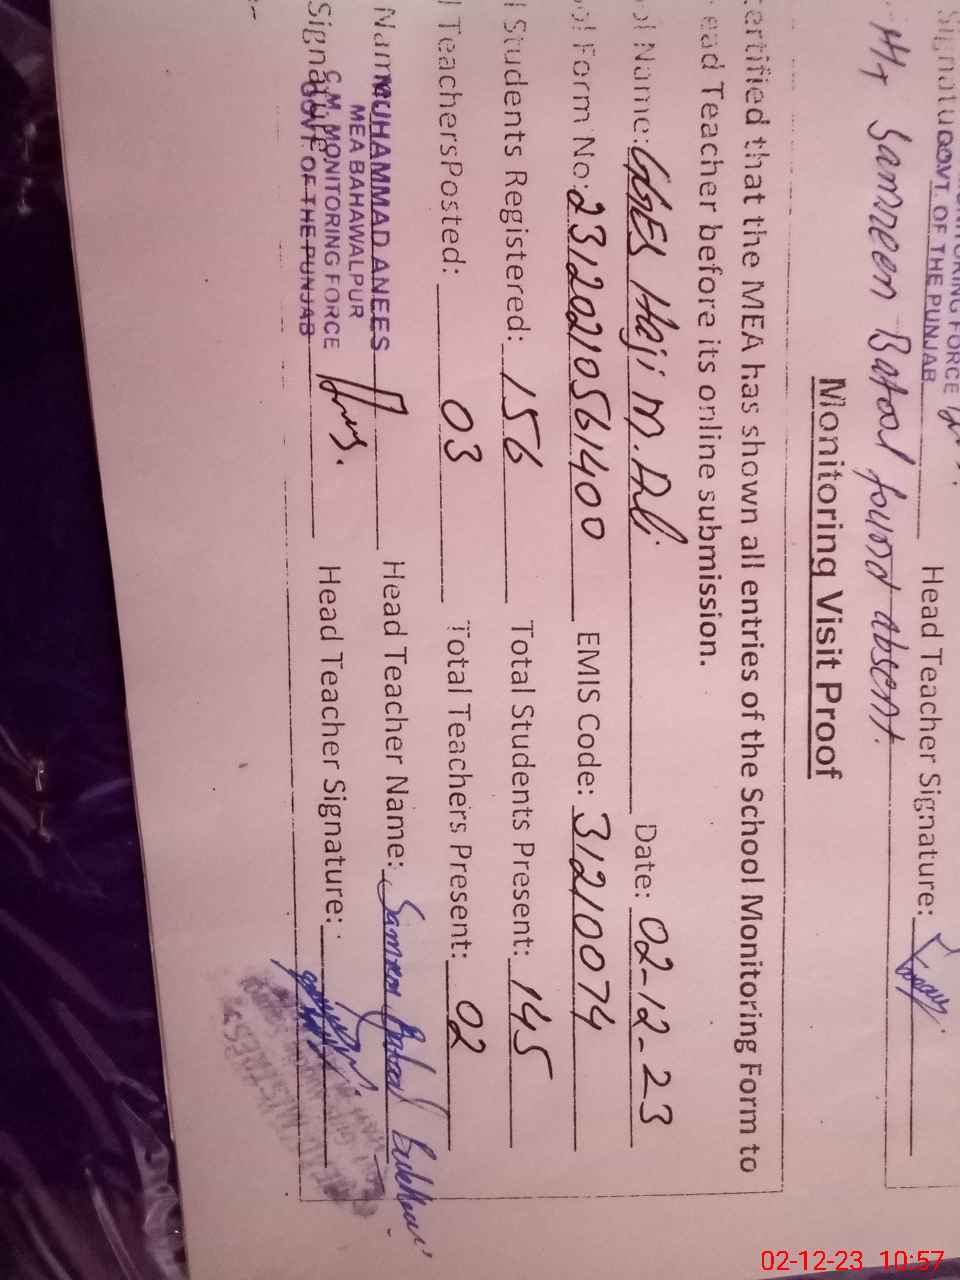 GOVT. OF THE PUNJAB
Head Teacher Signature:
HT Samreen Batool found absent.
Monitoring Visit Proof
ertified that the MEA has shown all entries of the School Monitoring Form to
ead Teacher before its online submission.
ol Name: GGES Haji M. Ali Date: 02-12-23
ol Form No: 23120210561400 EMIS Code: 31210074
l Students Registered: 156 Total Students Present: 145
l TeachersPosted: 03 Total Teachers Present: 02
Name MUHAMMAD ANEES Head Teacher Name: Samreen Batool Bukhari
MEA BAHAWALPUR
C.M. MONITORING FORCE
Signature GOVT. OF THE PUNJAB Head Teacher Signature:
02-12-23 10:57